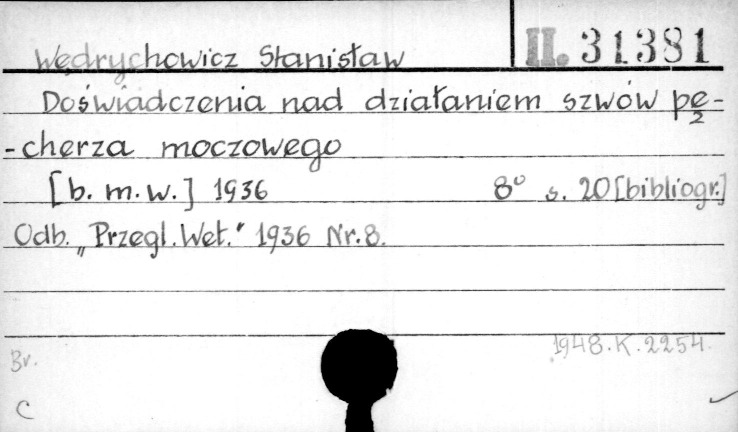 Wędrychowicz Stanisław II. 31381
Doświadczenia nad działaniem szwów pę-
-cherza moczowego
[b. m. w.] 1936 8° s. 20 [bibliogr.]
Odb. „Przegl. Wet." 1936 Nr. 8.
1948. K. 2254.
Br.
C